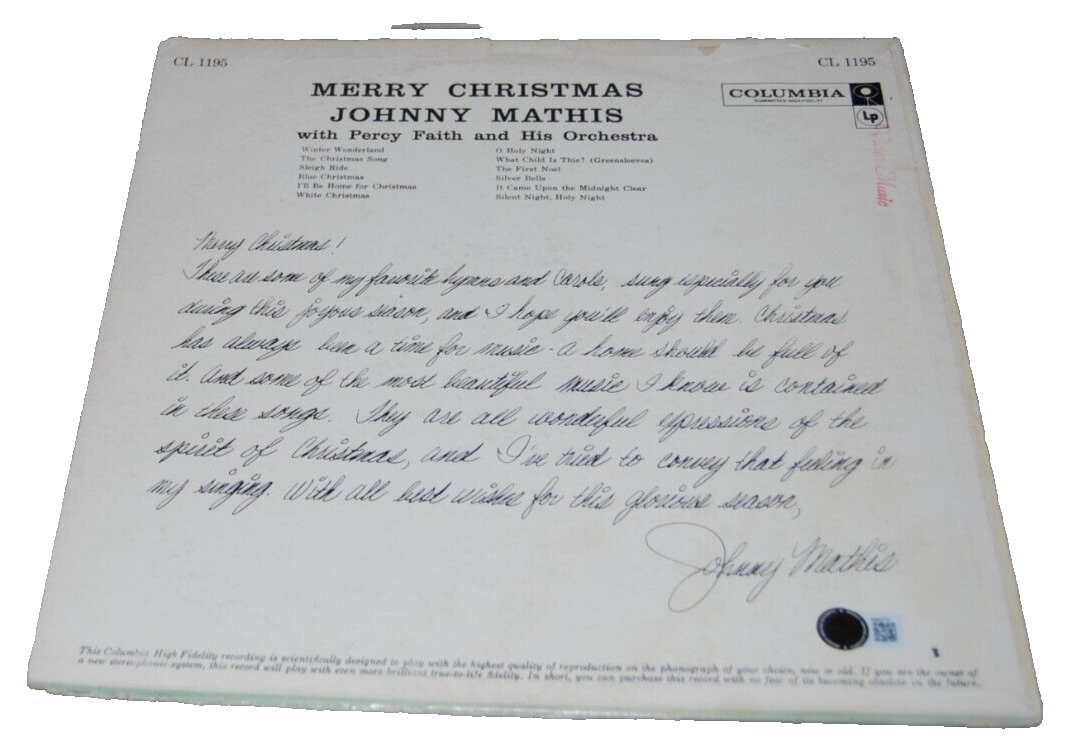 CL 1195
CL 1195
MERRY CHRISTMAS
JOHNNY MATHIS
with Percy Faith and His Orchestra
COLUMBIA
GUARANTEED HIGH-FIDELITY
Lp
Winter Wonderland
The Christmas Song
Sleigh Ride
Blue Christmas
I'll Be Home for Christmas
White Christmas
O Holy Night
What Child Is This? (Greensleeves)
The First Noel
Silver Bells
It Came Upon the Midnight Clear
Silent Night, Holy Night
Music
Merry Christmas!
These are some of my favorite hymns and carols, sung especially for you
during this joyous season, and I hope you'll enjoy them. Christmas
has always been a time for music - a home should be full of
it. And some of the most beautiful music I know is contained
in these songs. They are all wonderful expressions of the
spirit of Christmas, and I've tried to convey that feeling in
my singing. With all best wishes for this glorious season,
Johnny Mathis
3
This Columbia High Fidelity recording is scientifically designed to play with the highest quality of reproduction on the phonograph of your choice, new or old. If you are the owner of
a new stereophonic system, this record will play with even more brilliant true-to-life fidelity. In short, you can purchase this record with no fear of its becoming obsolete in the future.